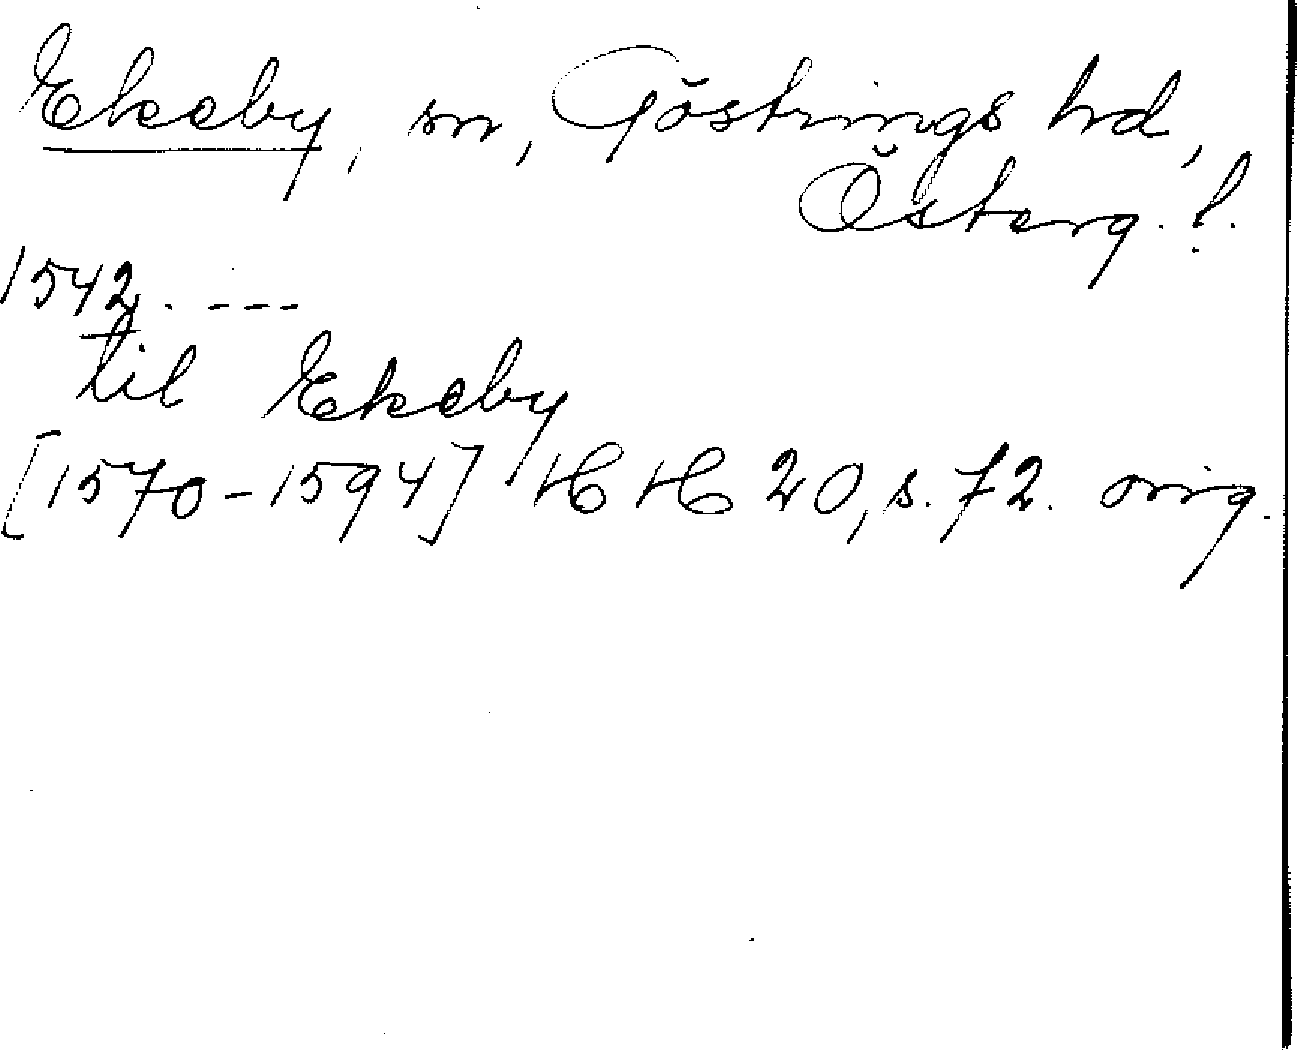 Ekeby, sn, Göstrings hd,
Österg. l.
1542. ---
til Ekeby
[1570-1594] HH 20, s. 72. orig.